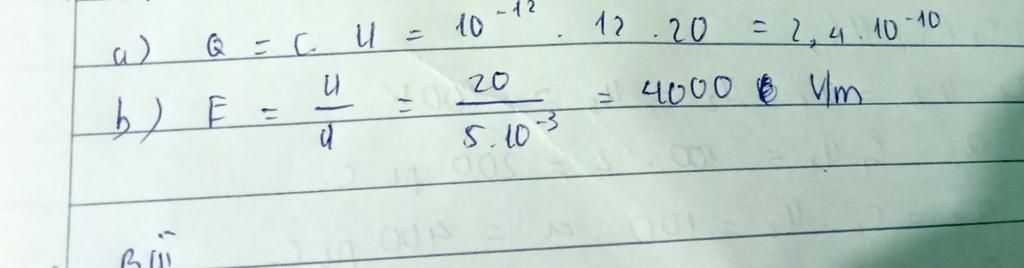 a) Q = C U = 10^-12 . 12 . 20 = 2,4 . 10^-10
b) E = U/d = 20/5.10^-3 = 4000 V/m